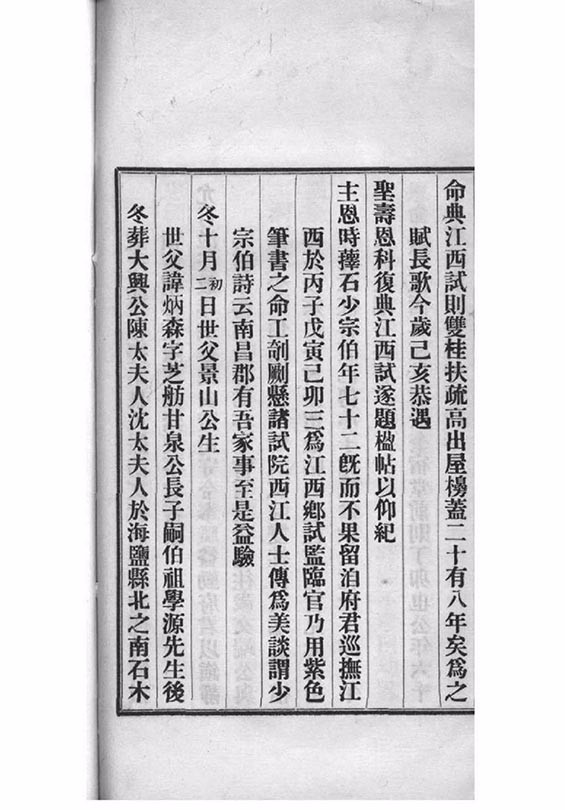 命典江西試則雙桂扶疏高出屋櫋蓋二十有八年矣爲之
賦長歌今歲己亥恭遇
聖壽恩科復典江西試遂題楹帖以仰紀
主恩時蘀石少宗伯年七十二旣而不果留泊府君巡撫江
西於丙子戊寅己卯三爲江西鄕試監臨官乃用紫色
筆書之命工剞劂懸諸試院西江人士傳爲美談謂少
宗伯詩云南昌郡有吾家事至是益驗
冬十月初二日世父景山公生
世父諱炳森字芝舫甘泉公長子嗣伯祖學源先生後
冬葬大興公陳太夫人沈太夫人於海鹽縣北之南石木